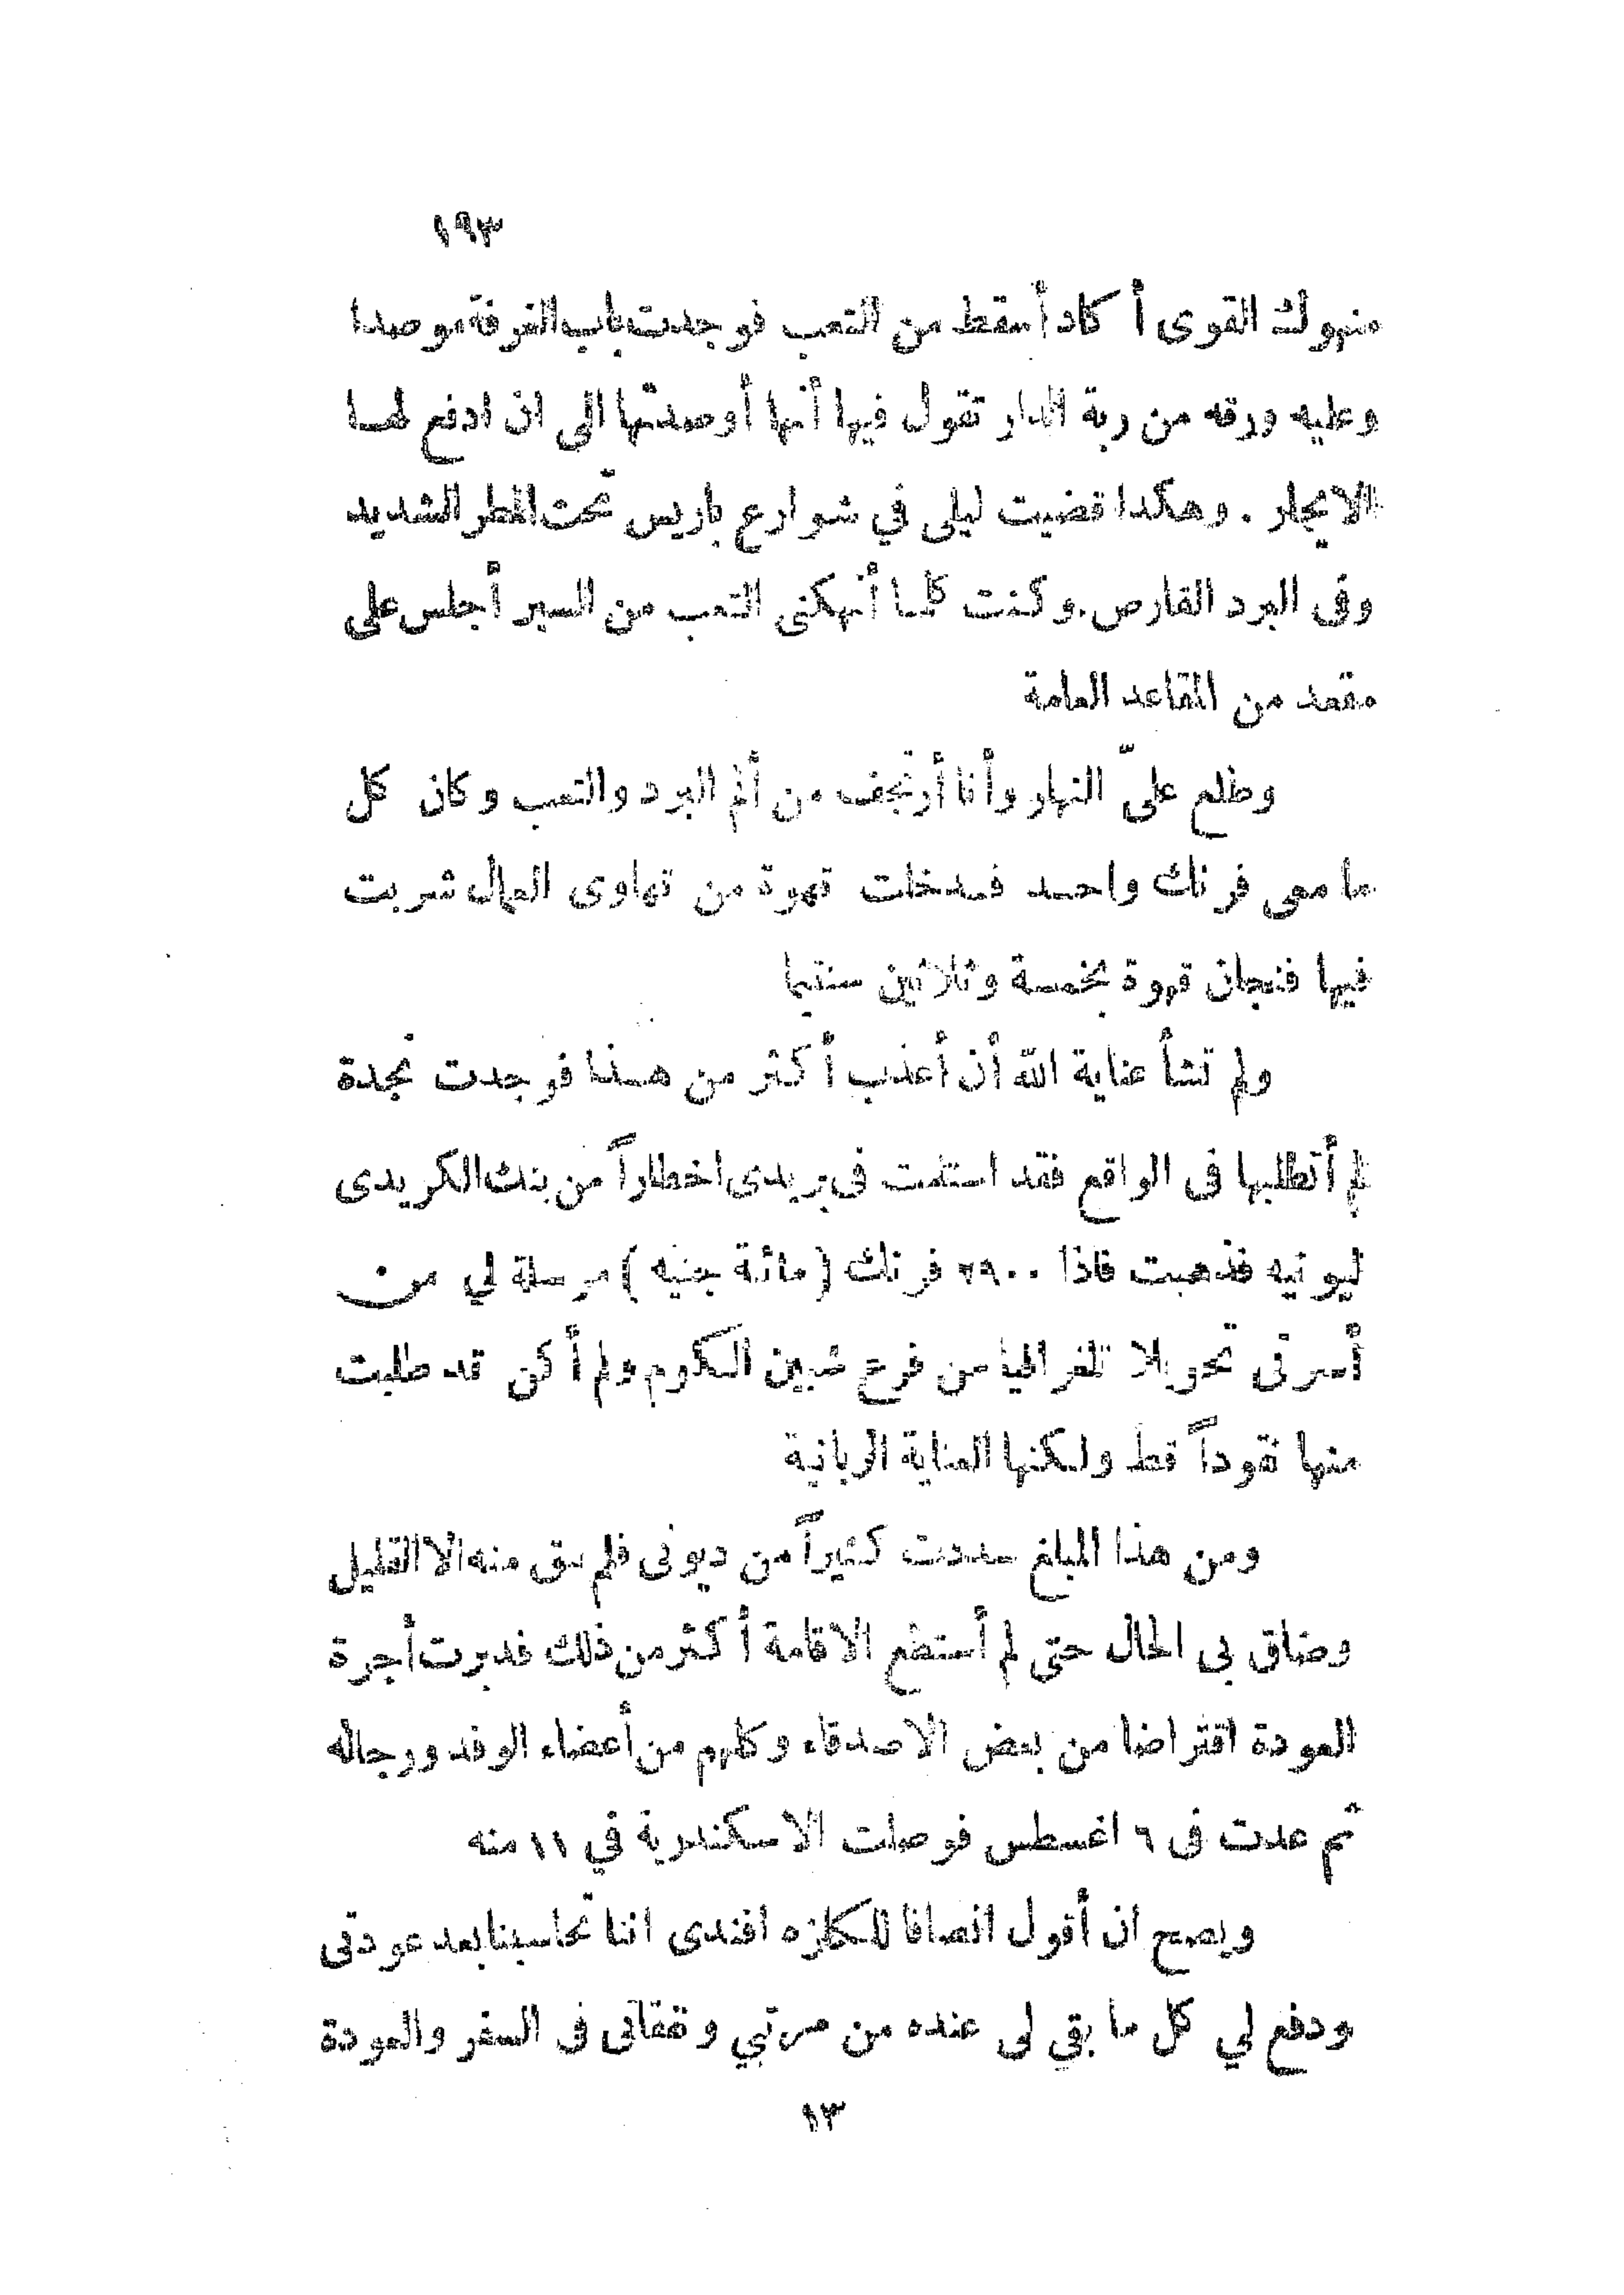 ١٩٣
منهوك القوى أكاد أسقط من التعب فوجدت باب الغرفة موصدا
وعليه ورقه من ربة الدار تقول فيها أنها أوصدتها الى ان ادفع لها
الايجار . وهكذا قضيت ليلى في شوارع باريس تحت المطر الشديد
وفى البرد القارص . وكنت كلما أنهكنى التعب من السير أجلس على
مقعد من المقاعد العامة
وطلع علىّ النهار وأنا أرتجف من ألم البرد والتعب وكان كل
ما معى فرنك واحد فدخلت قهوة من قهاوى العمال شربت
فيها فنجان قهوة بخمسة وثلاثين سنتيما
ولم تشأ عناية الله أن أعذب أكثر من هذا فوجدت نجدة
لم أتطلبها فى الواقع فقد استلمت فى بريدى اخطاراً من بنك الكريدى
ليونيه فذهبت فاذا ٢٩٠٠ فرنك (مائة جنيه) مرسلة لي من
أسرتى تحويلا تلغرافيا من فرع شبين الكوم ولم أكن قد طلبت
منها نقوداً قط ولكنها العناية الربانية
ومن هذا المبلغ سددت كثيراً من ديونى فلم يبق منه الا القليل
وضاق بى الحال حتى لم أستطع الاقامة أكثر من ذلك فدبرت أجرة
العودة اقتراضا من بعض الاصدقاء وكلهم من أعضاء الوفد ورجاله
ثم عدت فى ٦ اغسطس فوصلت الاسكندرية في ١١ منه
ويصح ان أقول انصافا للكلزه افندى اننا تحاسبنا بعد عودتى
ودفع لي كل ما بقي لى عنده من مرتبي ونفقاتى فى السفر والعودة
١٣